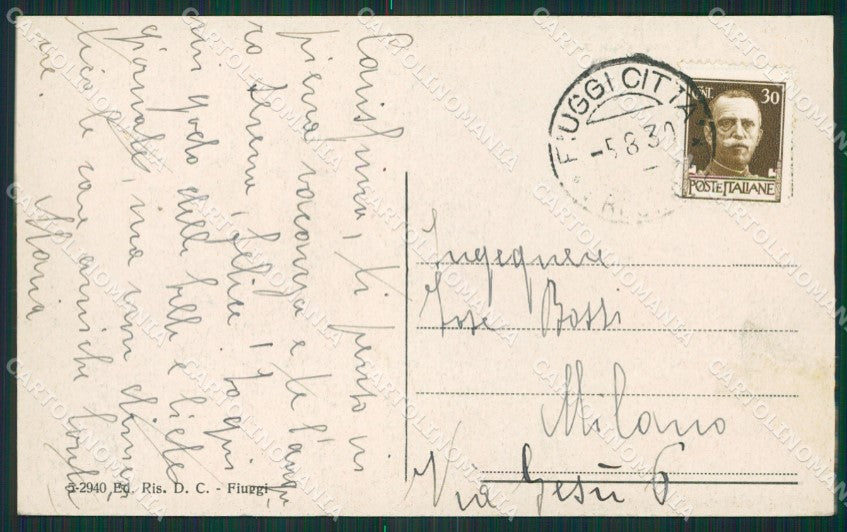 Carissima, ti penso in
piena vacanza e te l'augu
ro serena, felice! Io qui
mi godo delle belle e liete
giornate, ma non dimen
tico le care amiche
Maria
5-2940 Ed. Ris. D. C. - Fiuggi
FIUGGI CITTA
-5.8.30
CENT. 30
POSTE ITALIANE
Ingegnere
Bossi
Milano
Via Gesù 6
CARTOLINOMANIA